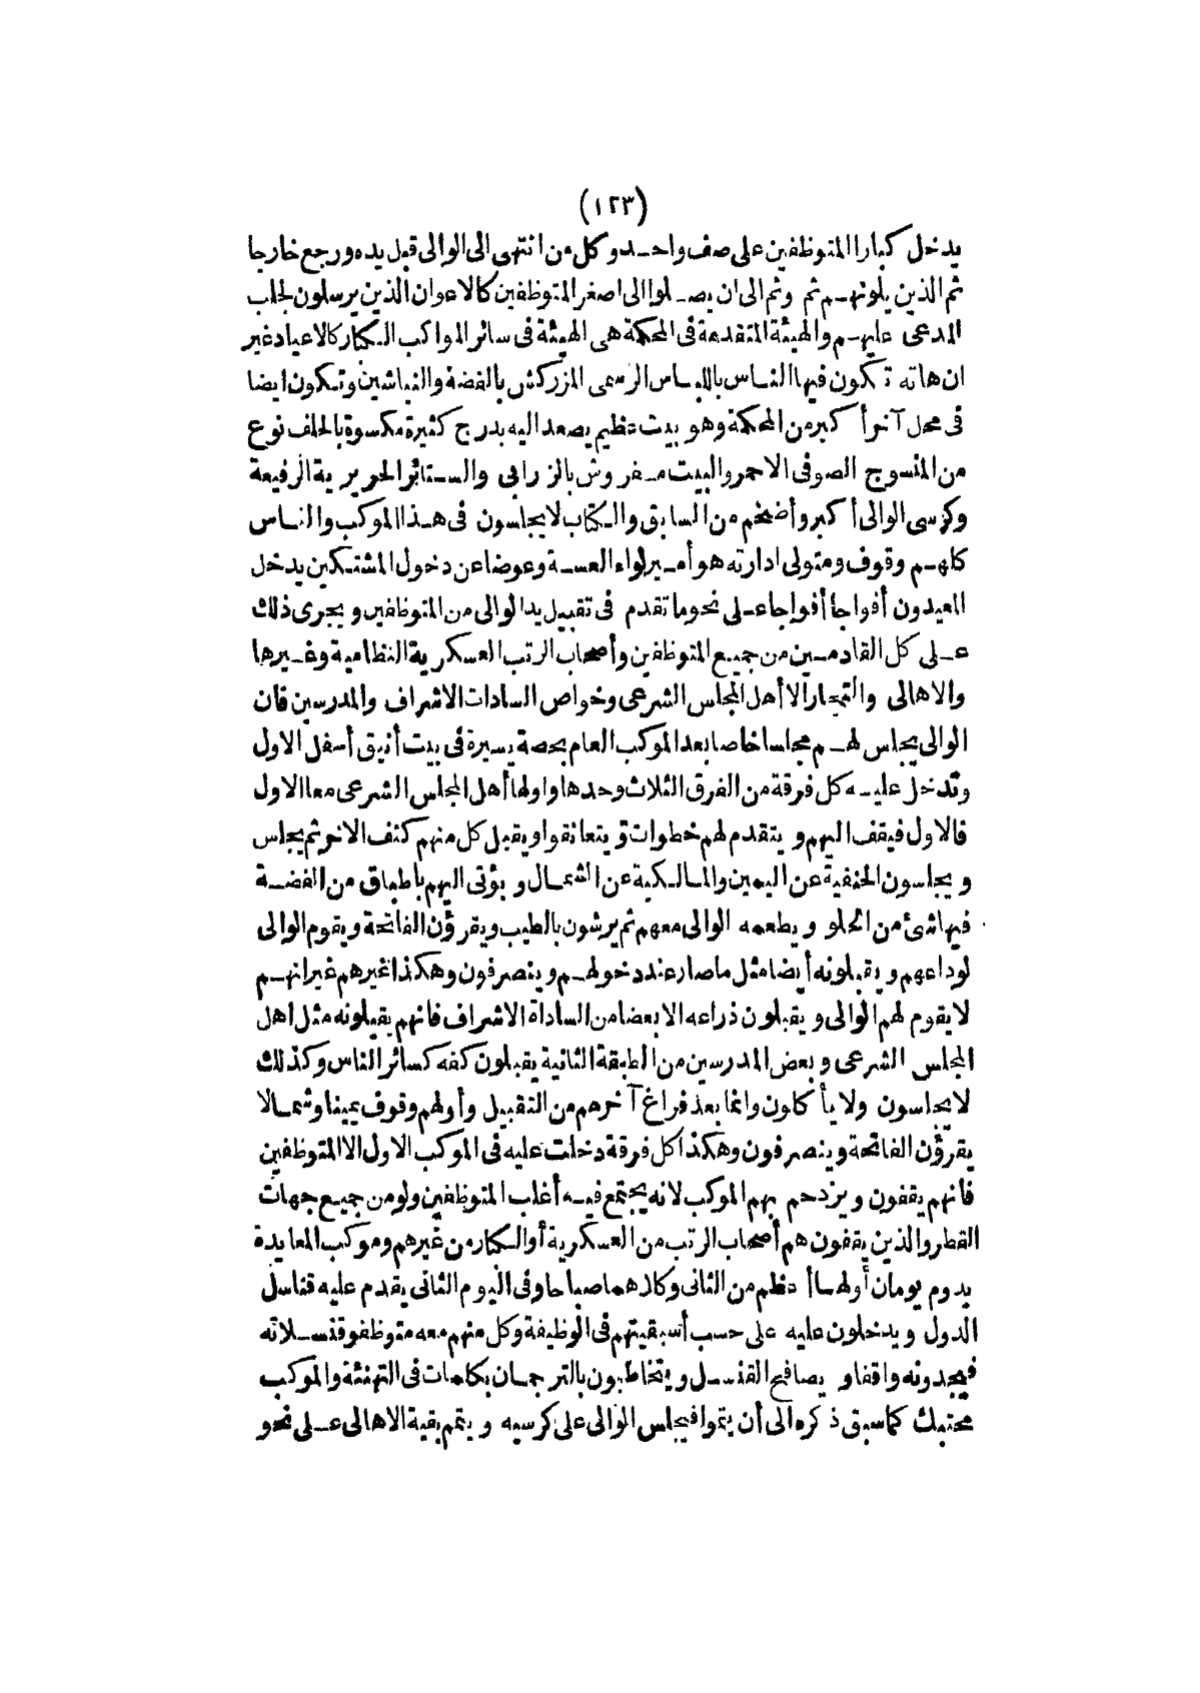 (١٢٣)
يدخل كبار المتوظفين على صف واحد وكل من انتهى الى الوالى قبل يده ورجع خارجا
ثم الذين يلونهم ثم وثم الى ان يصلوا الى اصغر المتوظفين كالاعوان الذين يرسلون لجلب
المدعى عليهم والهيئة المتقدمة فى المحكمة هى الهيئة فى سائر المواكب الكبار كالاعياد غير
ان هاته تكون فيها الناس باللباس الرسمى المزركش بالفضة والنياشين وتكون ايضا
فى محل آخر أكبر من المحكمة وهو بيت عظيم يصعد اليه بدرج كثيرة مكسوة بالملف نوع
من المنسوج الصوفى الاحمر والبيت مفروش بالزرابى والستائر الحريرية الرفيعة
وكرسى الوالى أكبر وأضخم من السابق والكتاب لا يجلسون فى هذا الموكب والناس
كلهم وقوف ومتولى ادارته هو أمير لواء العسة وعوضا عن دخول المشتكين يدخل
المعيدون أفواجا أفواجا على نحو ما تقدم فى تقبيل يد الوالى من المتوظفين ويجرى ذلك
على كل القادمين من جميع المتوظفين وأصحاب الرتب العسكرية النظامية وغيرها
والاهالى والتجار الا أهل المجلس الشرعى وخواص السادات الاشراف والمدرسين فان
الوالى يجلس لهم مجلسا خاصا بعد الموكب العام بحصة يسيرة فى بيت أنيق أسفل الاول
وتدخل عليه كل فرقة من الفرق الثلاث وحدها واولها أهل المجلس الشرعى معا الاول
فالاول فيقف اليهم ويتقدم لهم خطوات ويتعانقوا ويقبل كل منهم كتف الاخر ثم يجلس
ويجلسون الحنفية عن اليمين والمالكية عن الشمال ويؤتى اليهم باطباق من الفضة
فيها شئ من الحلو ويطعمه الوالى معهم ثم يرشون بالطيب ويقرؤن الفاتحة ويقوم الوالى
لوداعهم ويقبلونه أيضا مثل ما صار عند دخولهم وينصرفون وهكذا غيرهم غير انهم
لا يقوم لهم الوالى ويقبلون ذراعه الا بعضا من الساداة الاشراف فانهم يقبلونه مثل اهل
المجلس الشرعى وبعض المدرسين من الطبقة الثانية يقبلون كفه كسائر الناس وكذلك
لا يجلسون ولا يأكلون وانما بعد فراغ آخرهم من التقبيل وأولهم وقوف يمينا وشمالا
يقرؤن الفاتحة وينصرفون وهكذا كل فرقة دخلت عليه فى الموكب الاول الا المتوظفين
فانهم يقفون ويزدحم بهم الموكب لانه يجتمع فيه أغلب المتوظفين ولو من جميع جهات
القطر والذين يقفون هم أصحاب الرتب من العسكرية أو الكبار من غيرهم وموكب المعايدة
يدوم يومان أولهما أعظم من الثانى وكلاهما صباحا وفى اليوم الثانى يقدم عليه قناسل
الدول ويدخلون عليه على حسب أسبقيتهم فى الوظيفة وكل منهم معه متوظفو قنسلاته
فيجدونه واقفا ويصافح القنسل ويتخاطبون بالترجمان بكلمات فى التهنئة والموكب
محتبك كما سبق ذكره الى أن يتموا فيجلس الوالى على كرسيه ويتم بقية الاهالى على نحو